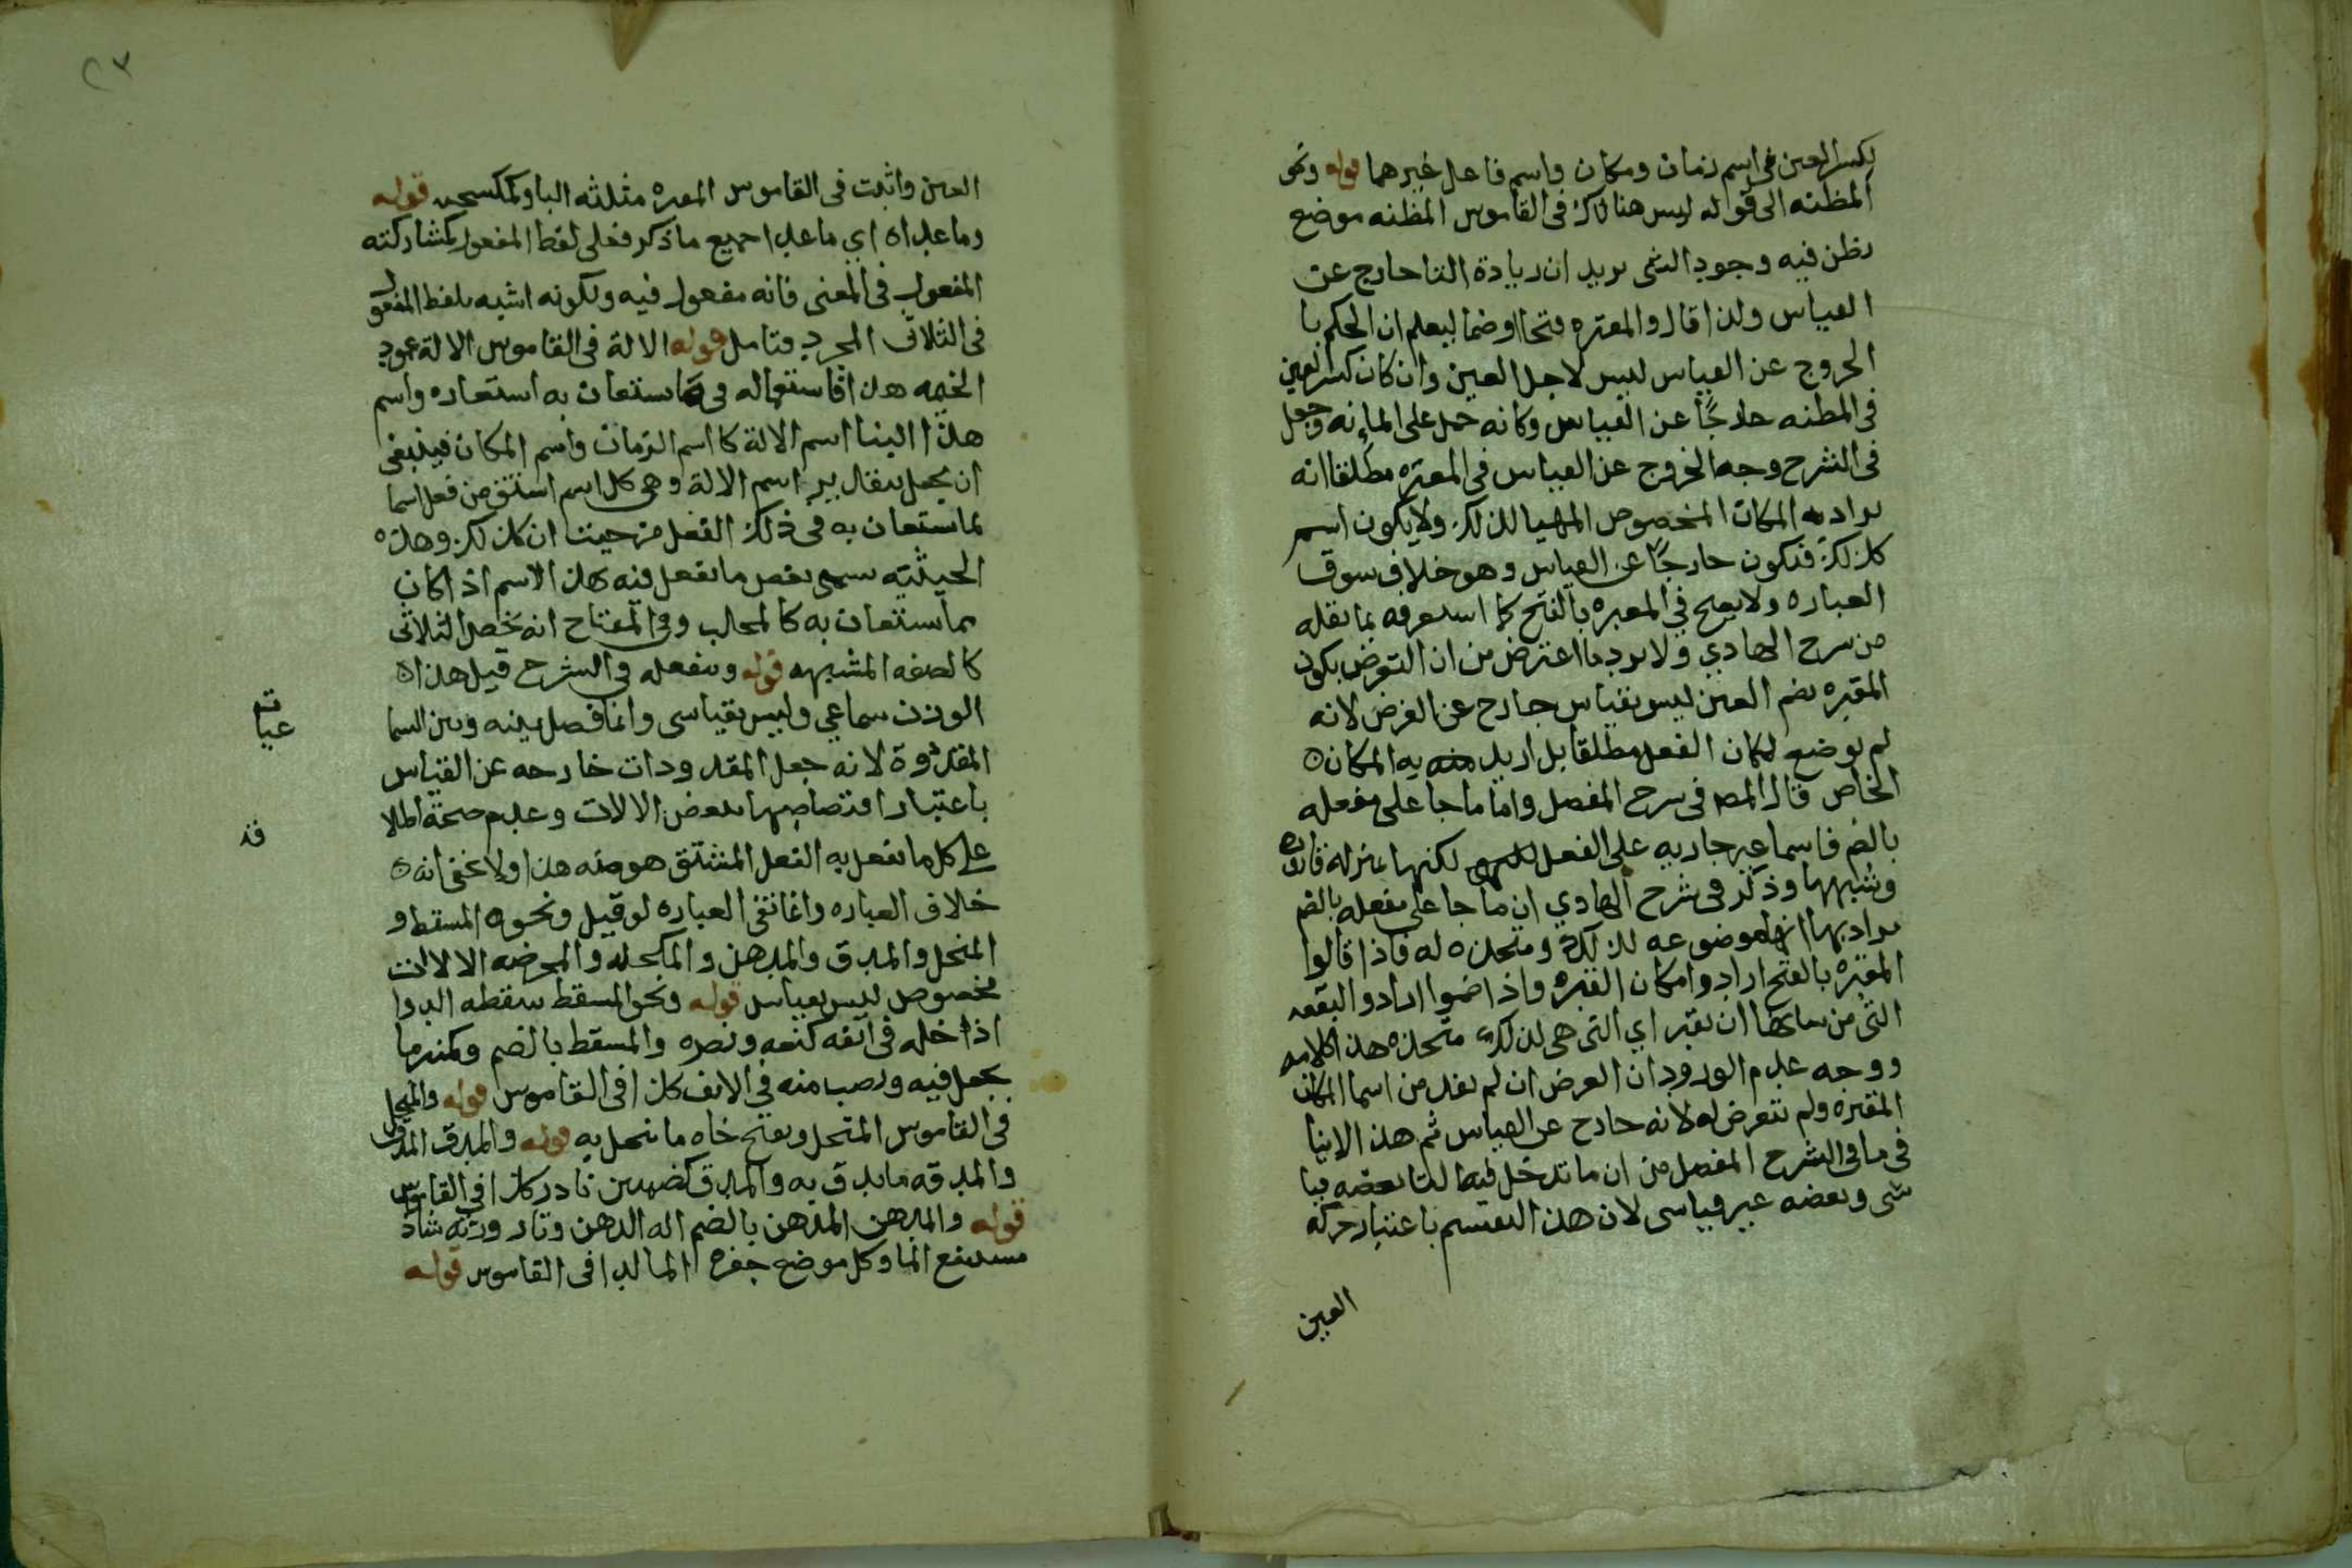 بكسر العين في اسم زمان ومكان واسم فاعل غيرهما قوله ونحو
المظنه الى قوله ليس هنالك في القاموس المظنه موضع
يظن فيه وجود الشي يريد ان زيادة التا خارج عن
القياس ولذا قال والمقبره فتحا وضما ليعلم ان الحكم با
الخروج عن القياس ليس لاجل العين وان كان كسر العين
في المظنه خارجًا عن القياس وكانه حمل على وجعل
في الشرح وجه الخروج عن القياس في المقبره مطلقا انه
يراد به المكان المخصوص المهيا لذلك ولا يكون اسم
كذلك فتكون خارجًا عن القياس وهو خلاف سوق
العباره ولا يصح في المقبره بالفتح كما استعرفه بما نقله
من شرح الهادي ولا يرد ما اعترض من ان التعرض بكون
المقبره بضم العين ليس بقياس خارج عن الغرض لانه
لم يوضع لمكان الفعل مطلقا بل اريد به المكان
الخاص قال المصـ في شرح المفصل واما ما جا على مفعله
بالضم فاسما غير جاريه على الفعل لكنها بمنزله قاروره
وشبهها وذكر في شرح الهادي ان ما جا على مفعله بالضم
يراد بها انها موضوعه لذلك ومتخذه له فاذا قالوا
المقبره بالفتح ارادوا مكان القبره واذا ضموا ارادوا البقعه
التي من شانها ان يقبر اي التي هي لذلك متخذه هذا كلامه
ووجه عدم الورود ان الغرض ان لم يعد من اسما المكان
المقبره ولم نتعرض له لانه خارج عن القياس ثم هذا
في ما في الشرح المفصل من ان ما تدخل فيها التا بعضه قيا
سي وبعضه غير قياسي لان هذا التقسيم باعتبار حركه
العين
العين واثبت في القاموس المقبره مثلثه البا وكمكنسه قوله
وما عداه اي ما عدا جميع ما ذكر فعلى لفظ المفعول لمشاركته
المفعول في المعنى فانه مفعول فيه ولكونه اشبه بلفظ المفعول
في الثلاثي المجرد فتامل قوله الالة في القاموس الالة عمود
الخيمه هذا فاستعماله في ما يستعان به استعاره واسم
هذا البنا اسم الالة كاسم الزمان واسم المكان فينبغي
ان يجعل اسم الالة وهي كل اسم اشتق من فعل اسما
لما يستعان به في ذلك الفعل من حيث ان كذلك وهذه
الحيثيه سمى بعض ما يفعل فيه هذا الاسم اذا كان
مما يستعان به كالمحلب وفي المفتاح انه يخص الثلاثي
كالصفه المشبهه قوله ومفعله في الشرح قيل هذا
الوزن سماعي وليس بقياسي وانما فصل بينه وبين السما
المقدوة لانه جعل المقدودات خارجه عن القياس
باعتبار اختصاصها ببعض الالات وعدم صحة اطلا
على كل ما يفعل به الفعل المشتق هو منه هذا ولا يخفى انه
خلاف العباره وانما تفي العباره لو قيل ونحوه المسقط و
المنخل والمدق والمدهن والمكحله والمحرضه الالات
مخصوص ليس بقياس قوله ونحو المسقط سقطه الدوا
اذا دخله في انفه كنعه ونصره والمسقط بالضم وكمنبر ما
يجعل فيه ويصب منه في الانف كذا في القاموس قوله والمنخل
في القاموس المنخل وبفتح خاه ما ينخل به قوله والمدق المدق
والمدقه ما يدق به والمدق بضمتين نادر كذا في القاموس
قوله والمدهن المدهن بالضم اله الدهن وقارورته شاذ
مستنقع الما وكل موضع حفره الما كذا في القاموس قوله
قه
عيا
قد
٢٣